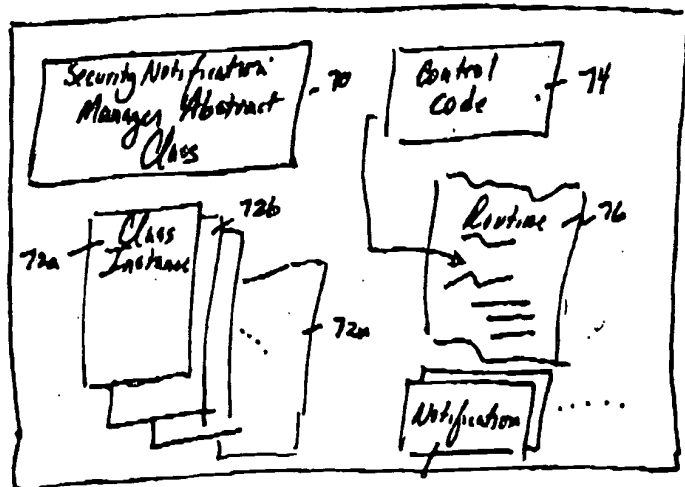 Security Notification
Manager Abstract
Class
70
Control
Code
74
72a
Class
Instance
72b
72n
Routine
76
Notification